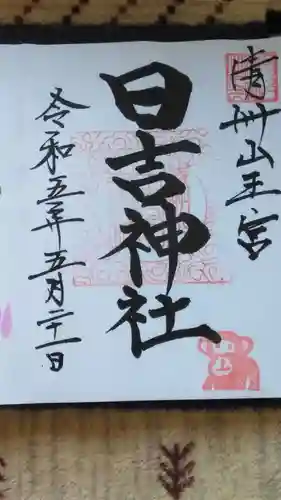 清洲山王宮
日吉神社
令和五年五月二十一日